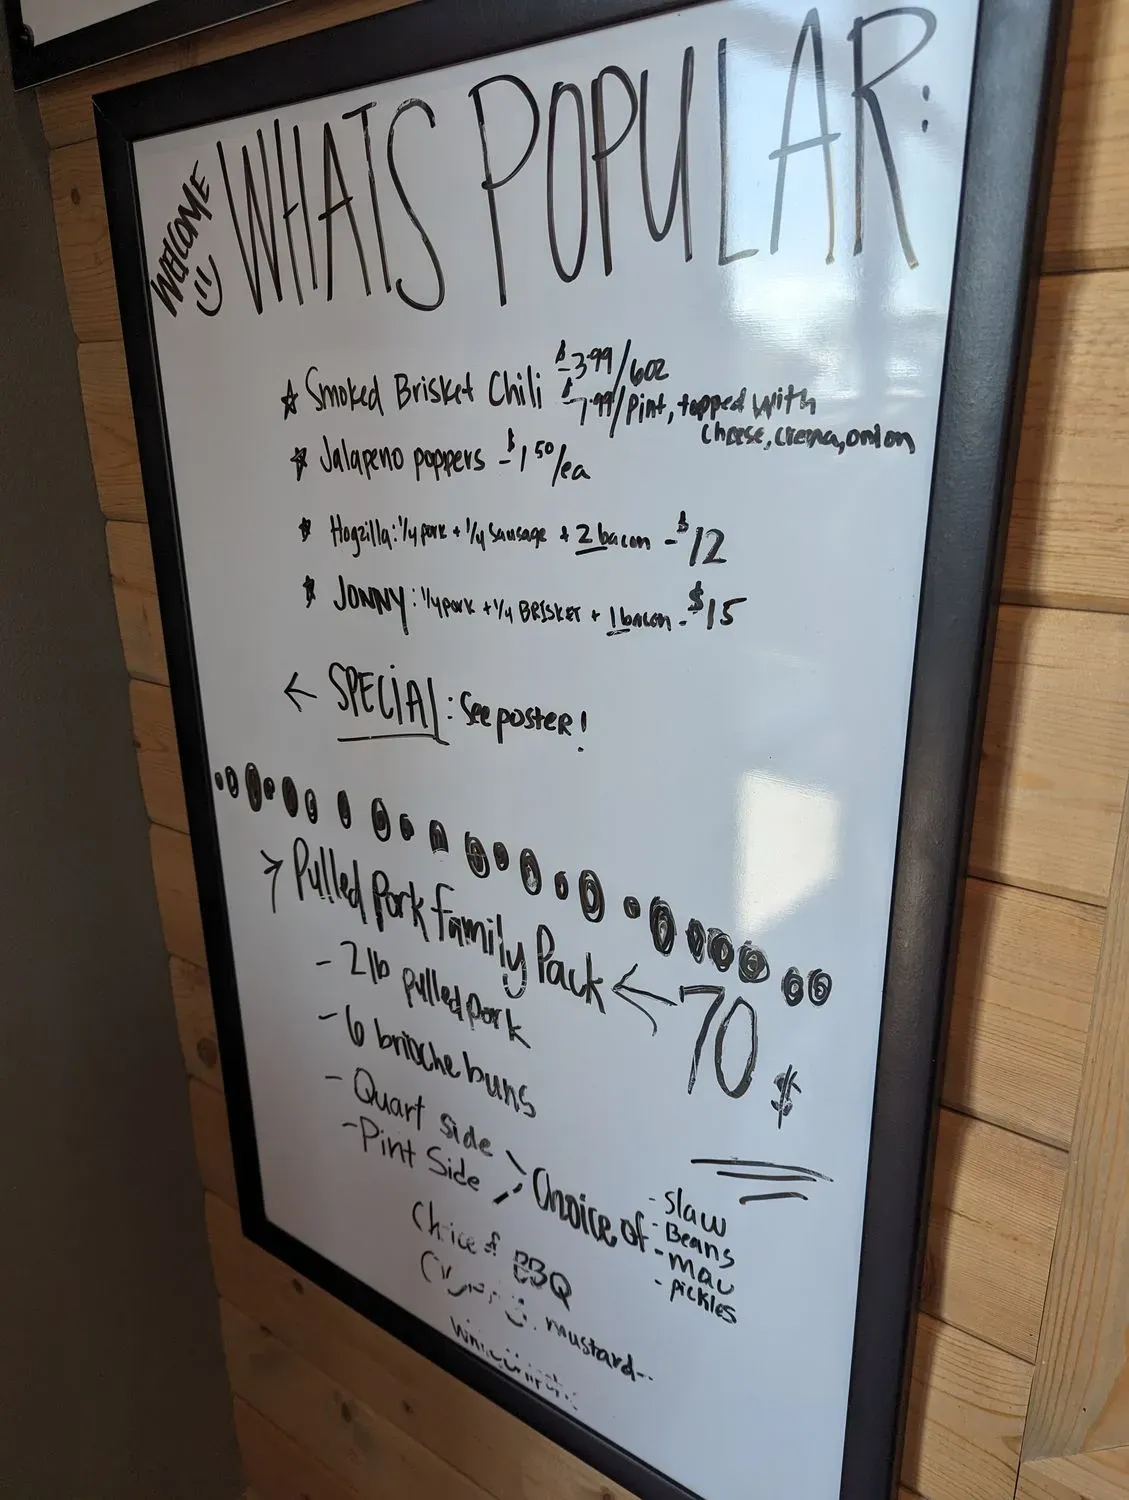 WELCOME
WHATS POPULAR:
☆ Smoked Brisket Chili $3.99/6oz
$7.99/Pint, topped with
cheese, crema, onion
☆ Jalapeno poppers - $1.50/ea
☆ Hogzilla: 1/4 pork + 1/4 Sausage + 2 bacon - $12
☆ JONNY: 1/4 pork + 1/4 BRISKET + 1 bacon - $15
← SPECIAL: See poster!
> Pulled Pork family Pack ← 70 $
- 2 lb pulled pork
- 6 brioche buns
- Quart side
- Pint Side
Choice of
- Slaw
- Beans
- mac
- pickles
Choice of BBQ
mustard--